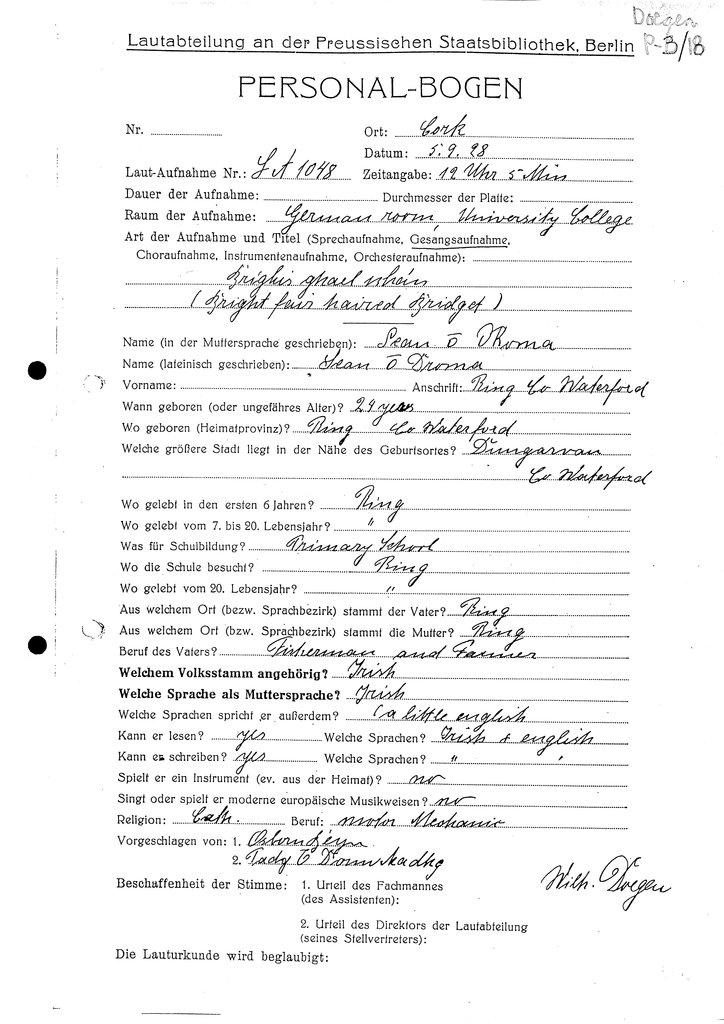 Doegen
P-B/18
Lautabteilung an der Preussischen Staatsbibliothek, Berlin
PERSONAL-BOGEN
Nr. Ort: Cork
Datum: 5.9.28
Laut-Aufnahme Nr.: LA 1048 Zeitangabe: 12 Uhr 5 Min
Dauer der Aufnahme: Durchmesser der Platte:
Raum der Aufnahme: German room, University College
Art der Aufnahme und Titel (Sprechaufnahme, Gesangsaufnahme,
Choraufnahme, Instrumentenaufnahme, Orchesteraufnahme):
ghael
(Bright fair haired Bridget)
Name (in der Muttersprache geschrieben): Sean ō Droma
Name (lateinisch geschrieben): Sean Ō Droma
Vorname: Anschrift: Ring Co Waterford
Wann geboren (oder ungefähres Alter)? 24 years
Wo geboren (Heimatprovinz)? Ring Co Waterford
Welche größere Stadt liegt in der Nähe des Geburtsortes? Dungarvan
Co Waterford
Wo gelebt in den ersten 6 Jahren? Ring
Wo gelebt vom 7. bis 20. Lebensjahr? "
Was für Schulbildung? Primary School
Wo die Schule besucht? Ring
Wo gelebt vom 20. Lebensjahr? "
Aus welchem Ort (bezw. Sprachbezirk) stammt der Vater? Ring
Aus welchem Ort (bzw. Sprachbezirk) stammt die Mutter? Ring
Beruf des Vaters? Fisherman and Farmer
Welchem Volksstamm angehörig? Irish
Welche Sprache als Muttersprache? Irish
Welche Sprachen spricht er außerdem? (a little english
Kann er lesen? yes Welche Sprachen? Irish & english
Kann er schreiben? yes Welche Sprachen? " "
Spielt er ein Instrument (ev. aus der Heimat)? no
Singt oder spielt er moderne europäische Musikweisen? no
Religion: Cath. Beruf: motor Mechanic
Vorgeschlagen von: 1. Osborn
2. Tadg
Beschaffenheit der Stimme: 1. Urteil des Fachmannes
(des Assistenten):
Wilh. Doegen
2. Urteil des Direktors der Lautabteilung
(seines Stellvertreters):
Die Lauturkunde wird beglaubigt: